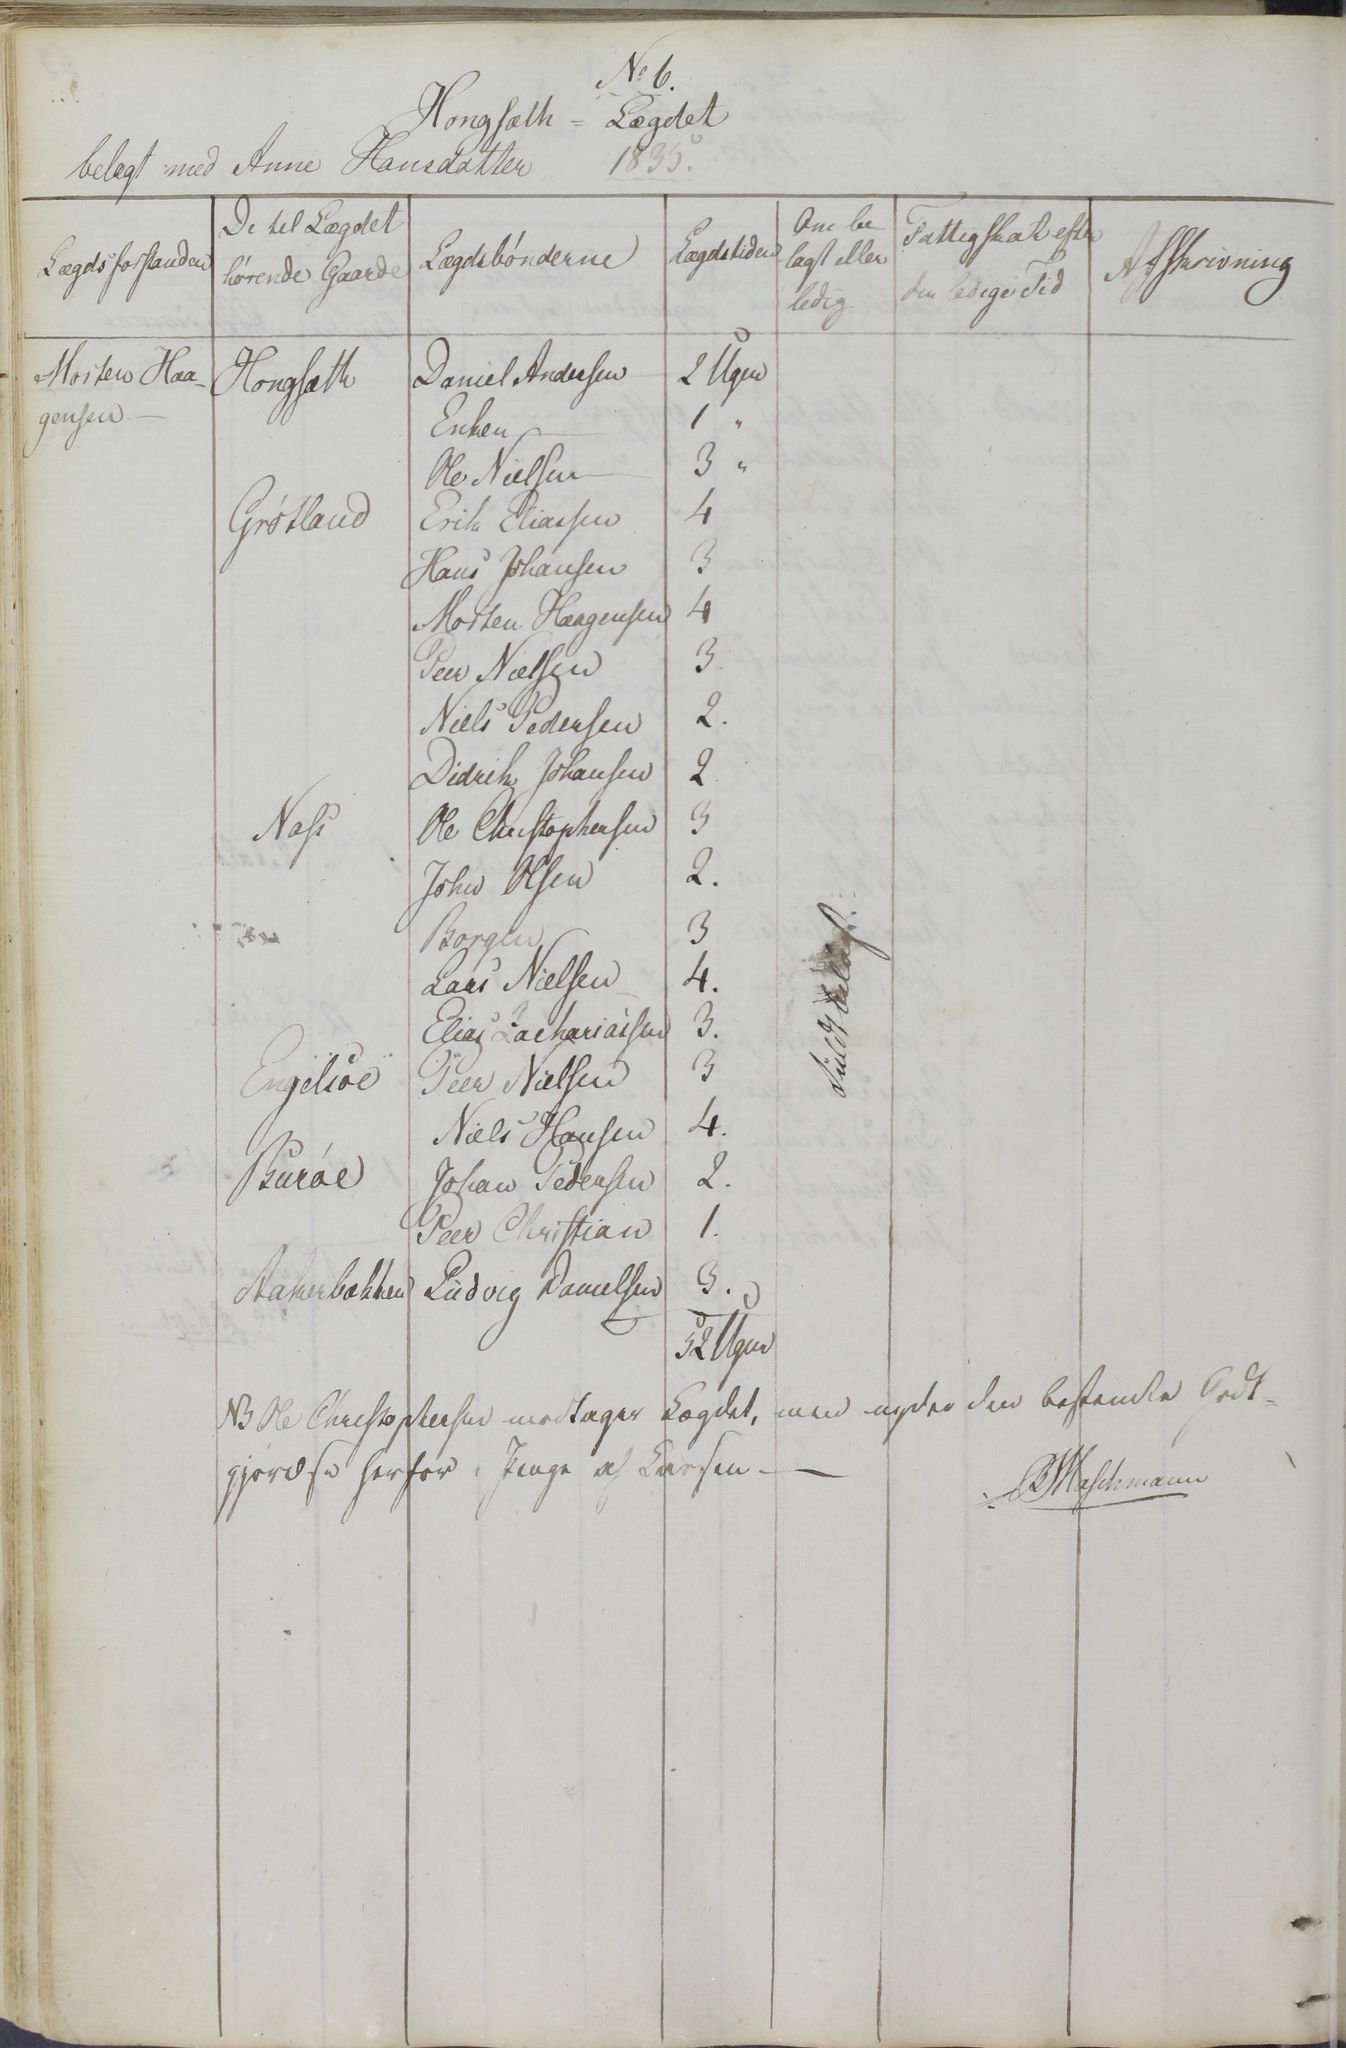 No 6.
Hongsæth = Lægdet
belagt med Anne Hansdatter 1835.
Lægdsforstanden | De til Lægdet hørende Gaarde | Lægdsbønderne | Lægdstiden | Om be lagt eller ledig | Fattigskat efter den ledige Tid | Afskrivning
Morten Haa- | Hongsæth | Daniel Andersen | 2 Uger
gensen — | Enken — | 1 "
Ole Nielsen — | 3 "
Grøtland | Erik Eliassen | 4
Hans Johansen | 3
Morten Haagensen | 4
Peer Nielsen | 3
Niels Pedersen | 2.
Didrik Johansen | 2
Næss | Ole Christophersen | 3
John Olsen | 2.
Borgen | 3
Lars Nielsen | 4.
Elias Zachariassen | 3.
Engelsøe | Peer Nielsen | 3
Niels Hansen | 4.
Burøe | Johan Pedersen | 2.
Peer Christian | 1.
Aakerbakken | Ludvig Danielsen | 3.
52 Uger
fuldt belagt.
NB Ole Christophersen modtager Lægdet, men nyder den bestemte Godt-
gjørelse herfor i Penge af Cassen —
Waschmann